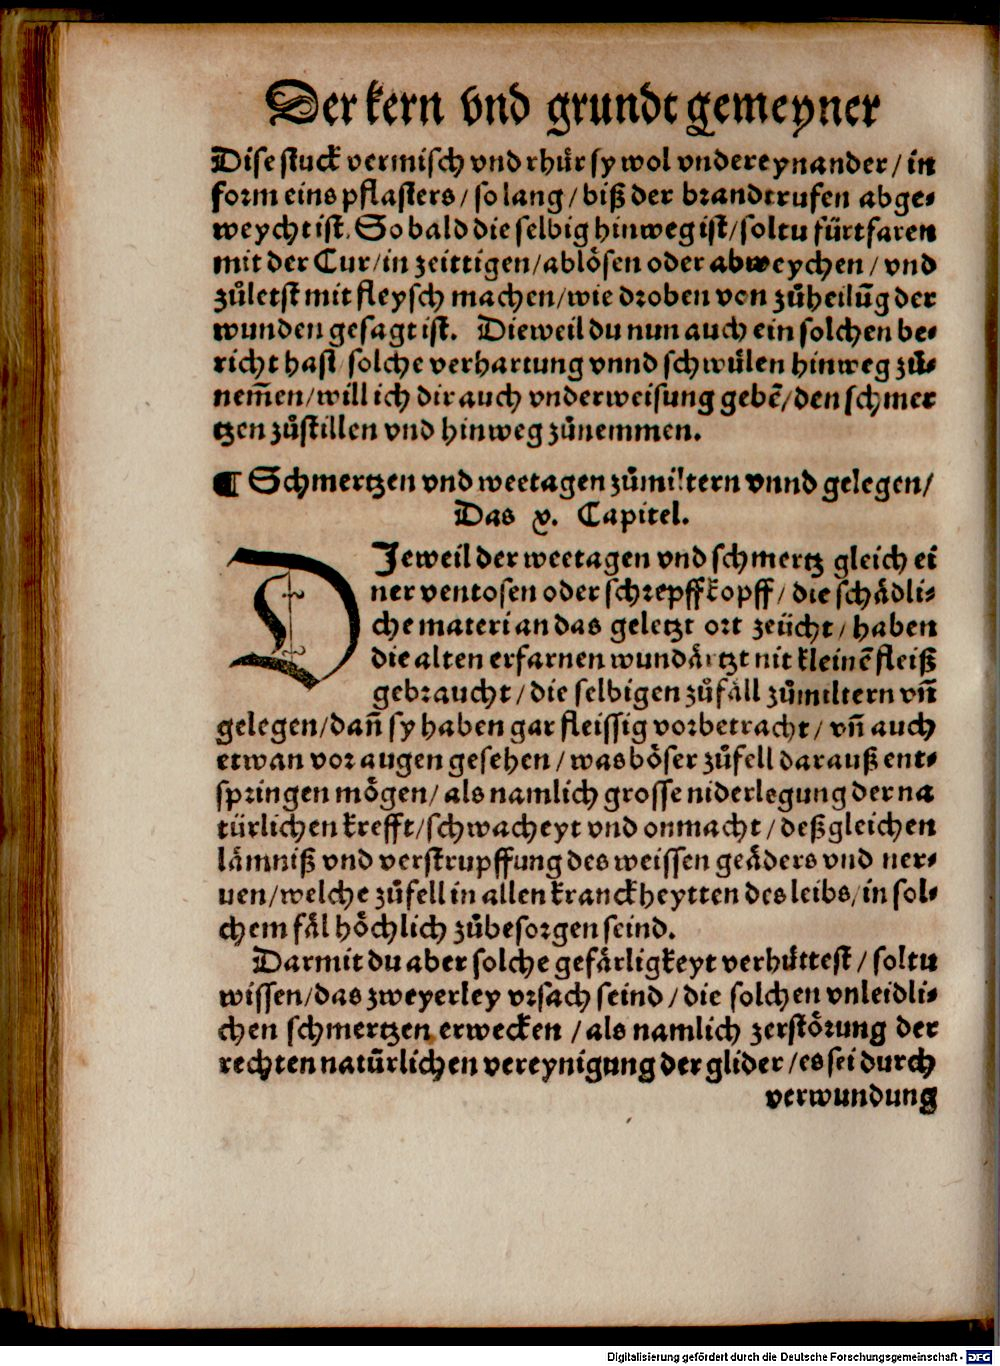 Der kern vnd grundt gemeyner
Dise stuck vermisch vnd rhuͤr sy wol vndereynander / in
form eins pflasters / so lang / biß der brandtrufen abge-
weycht ist. So bald die selbig hinweg ist / soltu fürtfaren
mit der Cur / in zeittigen / ablösen oder abweychen / vnd
zuͦletst mit fleysch machen / wie droben von zuͦheilūg der
wunden gesagt ist. Dieweil du nun auch ein solchen be-
richt hast / solche verhartung vnnd schwülen hinweg zuͦ-
nem̄en / will ich dir auch vnderweisung gebē / den schmer
tzen zuͦstillen vnd hinweg zuͦnemmen.
¶ Schmertzen vnd weetagen zuͦmiltern vnnd gelegen /
Das v. Capitel.
DJeweil der weetagen vnd schmertz gleich ei
ner ventosen oder schrepffkopff / die schädli-
che materi an das geletzt ort zeücht / haben
die alten erfarnen wundärtzt nit kleinē fleiß
gebraucht / die selbigen zuͦfäll zuͦmiltern vn̄
gelegen / dan̄ sy haben gar fleissig vorbetracht / vn̄ auch
etwan vor augen gesehen / was böser zuͦfell darauß ent-
springen mögen / als namlich grosse niderlegung der na
türlichen krefft / schwacheyt vnd onmacht / deßgleichen
lämniß vnd verstrupffung des weissen geäders vnd ner-
uen / welche zuͦfell in allen kranckheytten des leibs / in sol-
chem fäl höchlich zuͦbesorgen seind.
Darmit du aber solche gefärligkeyt verhuͤttest / soltu
wissen / das zweyerley vrsach seind / die solchen vnleidli-
chen schmertzen erwecken / als namlich zerstörung der
rechten natürlichen vereynigung der glider / es sei durch
verwundung
Digitalisierung gefördert durch die Deutsche Forschungsgemeinschaft - DFG